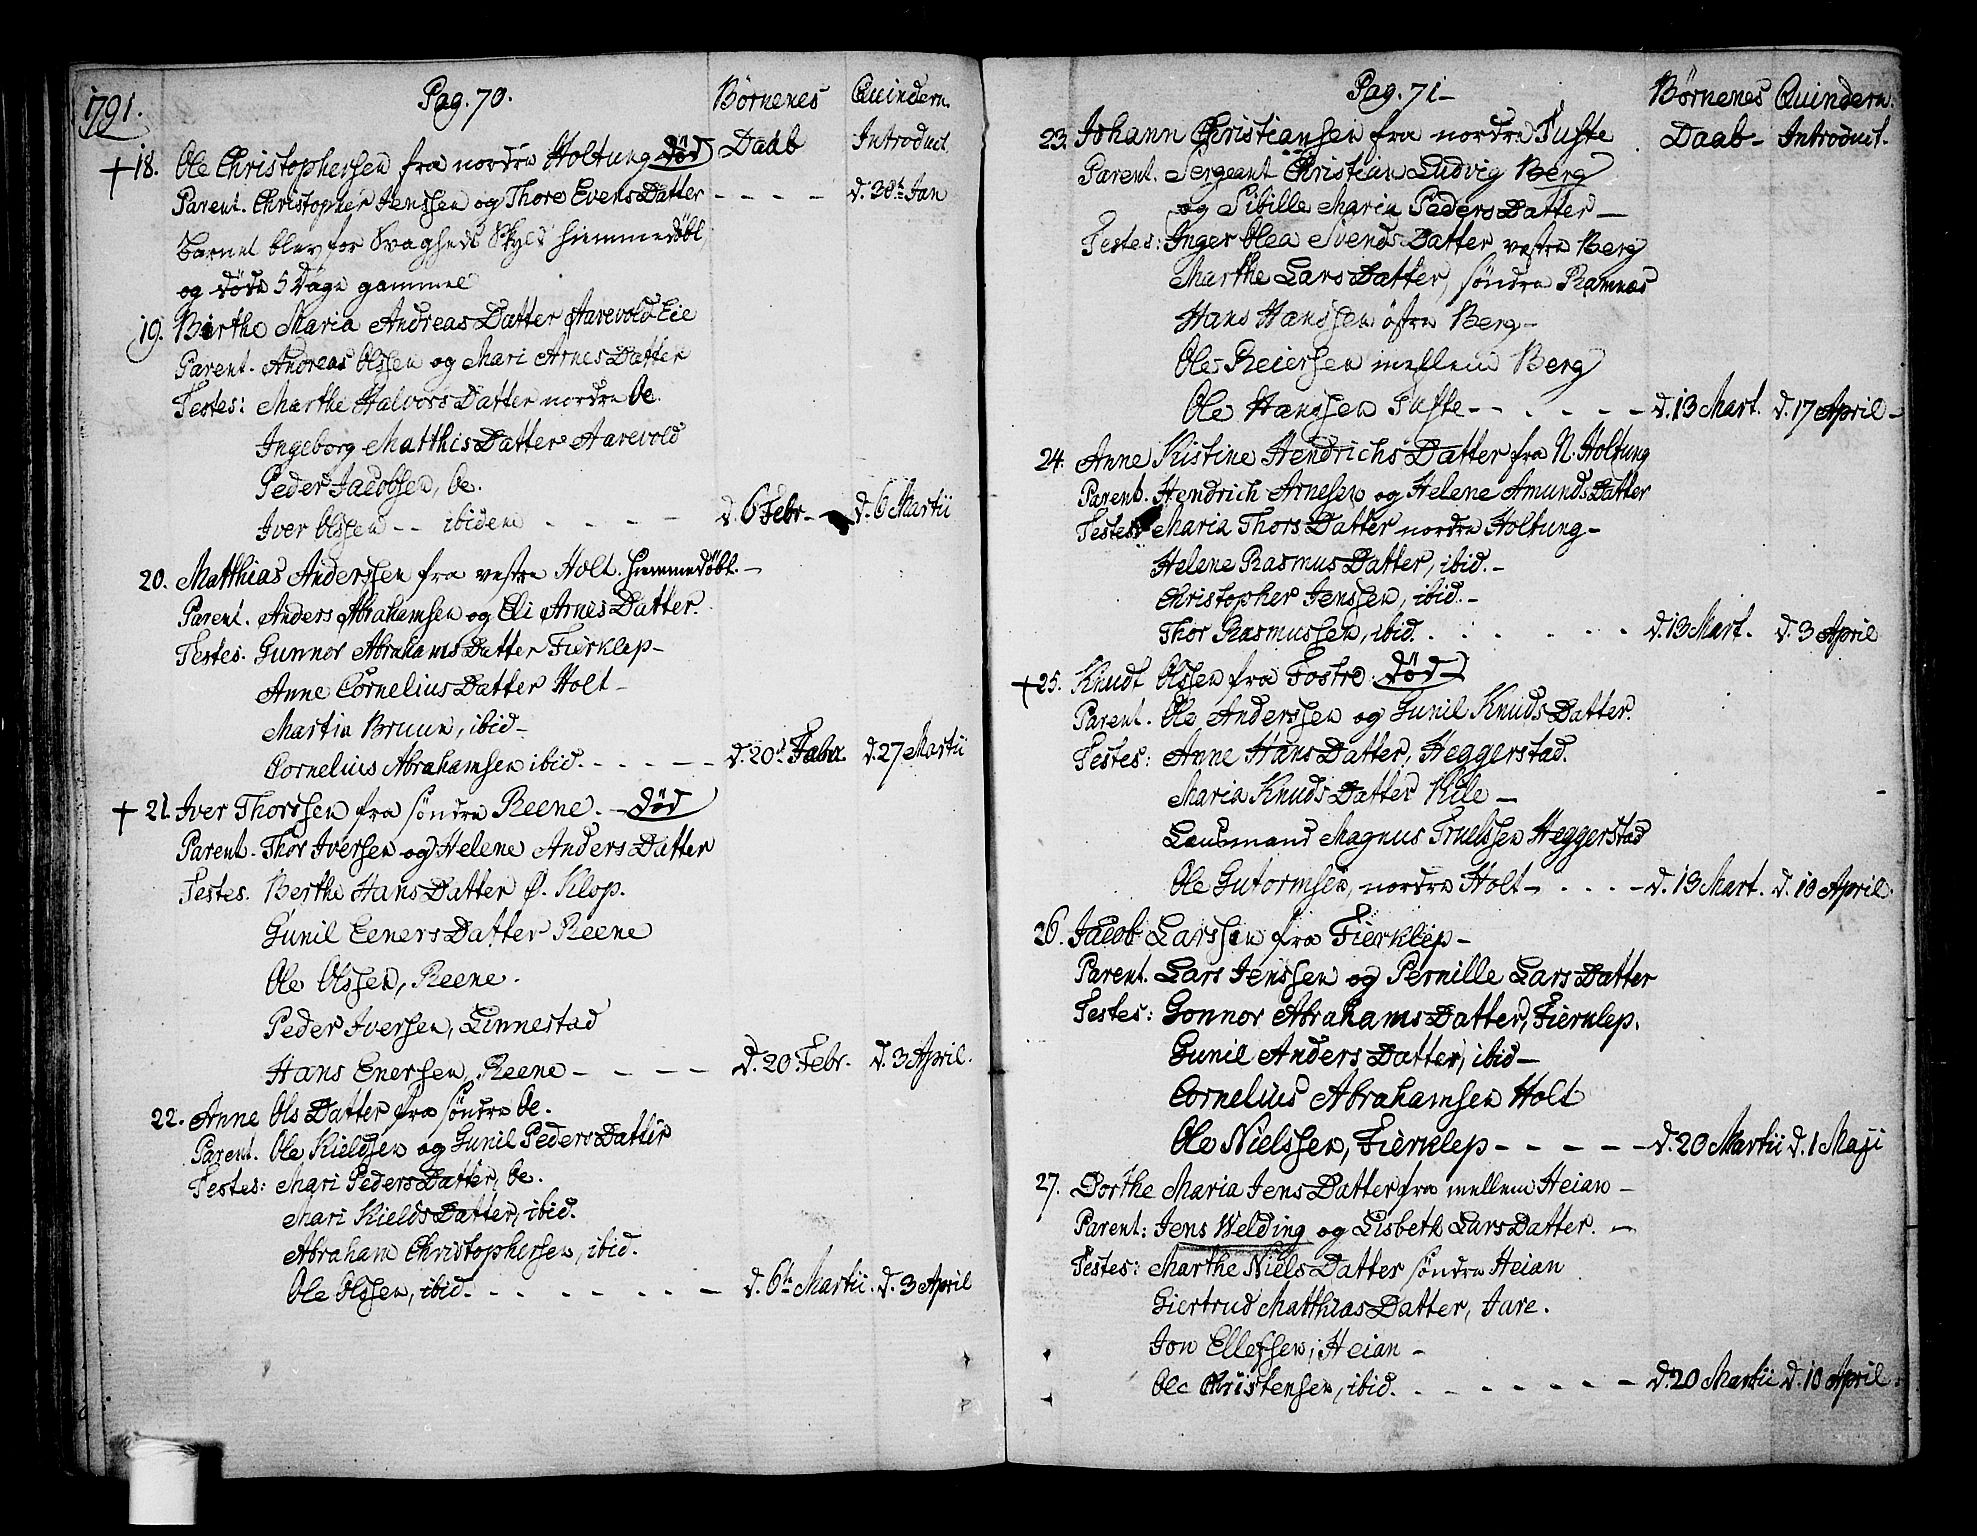 1791.
Pag. 70.
Børnenes Daab
Quindern. Introduct.
+ 18. Ole Christophersen fra nordre Holtung død
Parent. Christopher Jenssen og Thore Evens Datter - - - - d. 30te Jan
Barnet blev for Svagheds Skyld hiemmedøbt,
og døde 5 Dage gammel
19. Birthe Maria Andreas Datter Aarevold Eie
Parent. Andreas Olssen og Mari Arnes Datter
Testes: Marthe Halvors Datter nordre Oe.
Ingeborg Matthis Datter Aarevold
Peder Jacobsen, Oe.
Iver Olssen - - ibidem - - - - d. 6 Febr. - d. 6 Martii
20. Matthias Anderssen fra vestre Holt. hiemmedøbt. -
Parent. Anders Abrahamsen og Eli Arnes Datter.
Testes. Gunnor Abrahams Datter Fierklep -
Anne Cornelius Datter Holt -
Martin Bruun, ibid -
Cornelius Abrahamsen ibid. - - - - - d. 20d Febr. d. 27 Martii
+ 21. Iver Thorssen fra søndre Reene. - død
Parent. Thor Iversen og Helene Anders Datter
Testes. Berthe Hans Datter Ø. Klop.
Gunil Eeners Datter Reene
Ole Olssen, Reene.
Peder Iversen, Linnestad
Hans Enersen, Reene - - - - d. 20 Febr. d. 3 April.
22. Anne Ols Datter fra søndre Oe.
Parent. Ole Kieldsen og Gunil Peders Datter
Testes: Mari Peders Datter, Oe.
Mari Kields Datter, ibid.
Abraham Christophersen, ibid.
Ole Olssen, ibid. - - - - - - - d. 6te Martii. d. 3 April
Pag. 71 -
Børnenes Daab -
Quindern. Introduct.
23. Johann Christiansen fra nordre Tufte
Parent. Sergeant Christian Ludvig Berg
og Sibille Maria Peders Datter -
Testes: Inger Olea Svends Datter vestre Berg
Marthe Lars Datter, søndre Ramnæs
Hans Hanssen østre Berg -
Ole Reiersen mellem Berg
Ole Hanssen Tufte - - - - - - d. 13 Mart. d. 17 April -
24. Anne Kistine Hendrichs Datter fra N. Holtung
Parent. Hendrich Arnesen og Helene Amunds Datter
Testes: Maria Thors Datter nordre Holtung -
Helene Rasmus Datter, ibid. -
Christopher Jenssen, ibid. -
Thor Rasmussen, ibid. - - - - - - d. 13 Mart. d. 3 April
+ 25. Knudt Olssen fra Fostre. død -
Parent. Ole Anderssen og Gunil Knuds Datter.
Testes: Anne Hans Datter, Heggerstad.
Maria Knuds Datter Kile -
Lensmand Magnus Truelssen Heggerstad
Ole Gutormsen, nordre Holt - - - - d. 13 Mart. d. 10 April.
26. Jacob Larssen fra Fierklep -
Parent. Lars Jenssen og Pernille Lars Datter
Testes: Gonnor Abrahams Datter, Fierklep.
Gunil Anders Datter, ibid -
Cornelius Abrahamsen Holt
Ole Nielssen, Fierklep - - - - - d. 20 Martii d. 1 Maji
27. Dorthe Maria Jens Datter fra mellem Heian -
Parent: Jens Welding og Lisbeth Lars Datter. -
Testes: Marthe Niels Datter søndre Heian
Giertrud Matthias Datter, Jare.
Jon Ellefsen, Heian -
Ole Christensen, ibid. - - - - - - - d. 20 Martii d. 10 April.